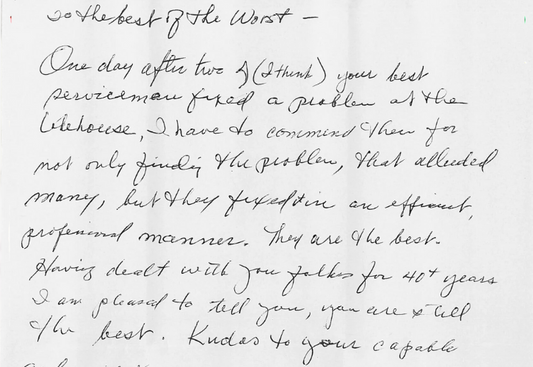 So the best of the Worst —
One day after two of (I think) your best
servicemen fixed a problem at the
I have to commend them for
not only finding the problem, that alluded
many, but they fixed it in an efficient,
professional manner. They are the best.
Having dealt with you folks for 40+ years
I am pleased to tell you, you are still
the best. Kudos to your capable